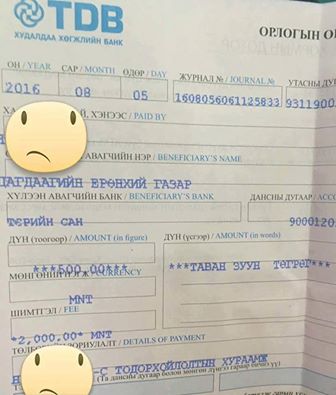 TDB
ХУДАЛДАА ХӨГЖЛИЙН БАНК
ОРЛОГЫН
ОН / YEAR САР / MONTH ӨДӨР / DAY ЖУРНАЛ № / JOURNAL № УТАСНЫ
2016 08 05 1608056061125833 9311900
ХЭНЭЭС / PAID BY
АВАГЧИЙН НЭР / BENEFICIARY'S NAME
ЦАГДААГИЙН ЕРӨНХИЙ ГАЗАР
ХҮЛЭЭН АВАГЧИЙН БАНК / BENEFICIARY'S BANK ДАНСНЫ ДУГААР / ACCO
ТӨРИЙН САН 9000120
ДҮН (тоогоор) / AMOUNT (in figure) ДҮН (үсгээр) / AMOUNT (in words)
***500.00*** ***ТАВАН ЗУУН ТӨГРӨГ***
МӨНГӨНИЙ НЭГЖ / CURRENCY
MNT
ШИМТГЭЛ / FEE
*2,000.00* MNT
/ DETAILS OF PAYMENT
-С ТОДОРХОЙЛОЛТЫН ХУРААМЖ